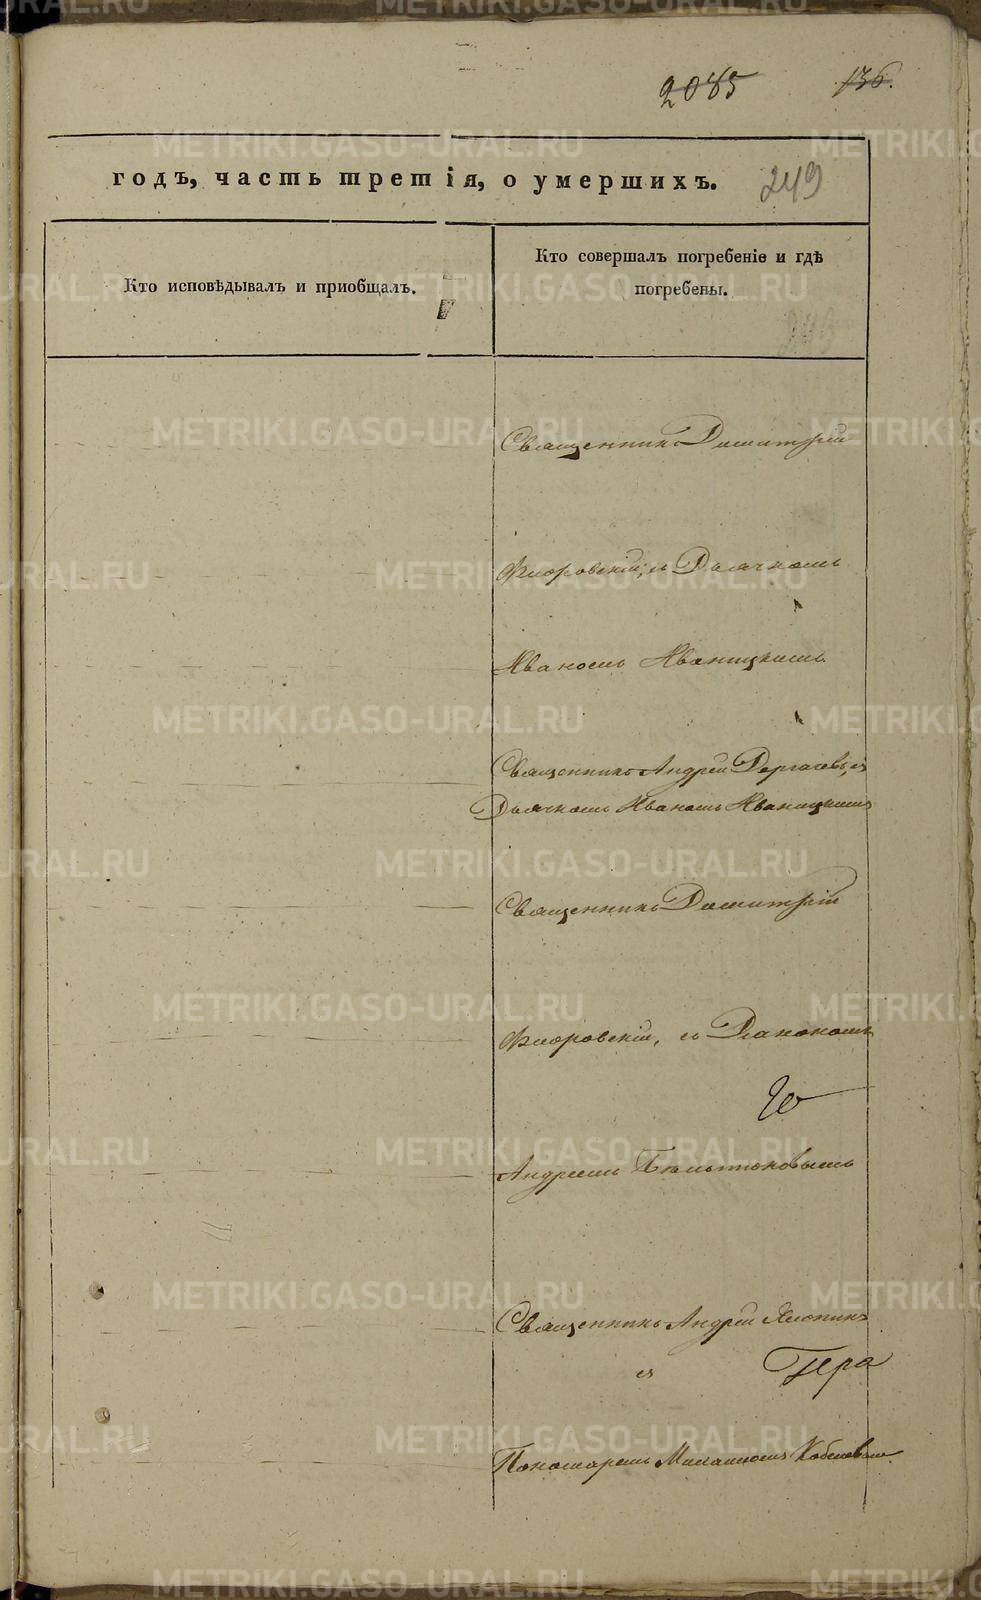 2085 136.
годъ, часть третія, о умершихъ. 249
Кто исповѣдывалъ и приобщалъ.
Кто совершалъ погребеніе и гдѣ
погребены.
Священникъ Димитрій
Флоровскій, съ Дьячкомъ
Иваномъ Иваницкимъ.
Священникъ Андрей Дергачевъ, съ
Дьячкомъ Иваномъ Иваницкимъ
Священникъ Димитрій
Флоровскій, съ Діакономъ
Андреемъ
Священникъ Андрей
съ
Пономаремъ
METRIKI.GASO-URAL.RU